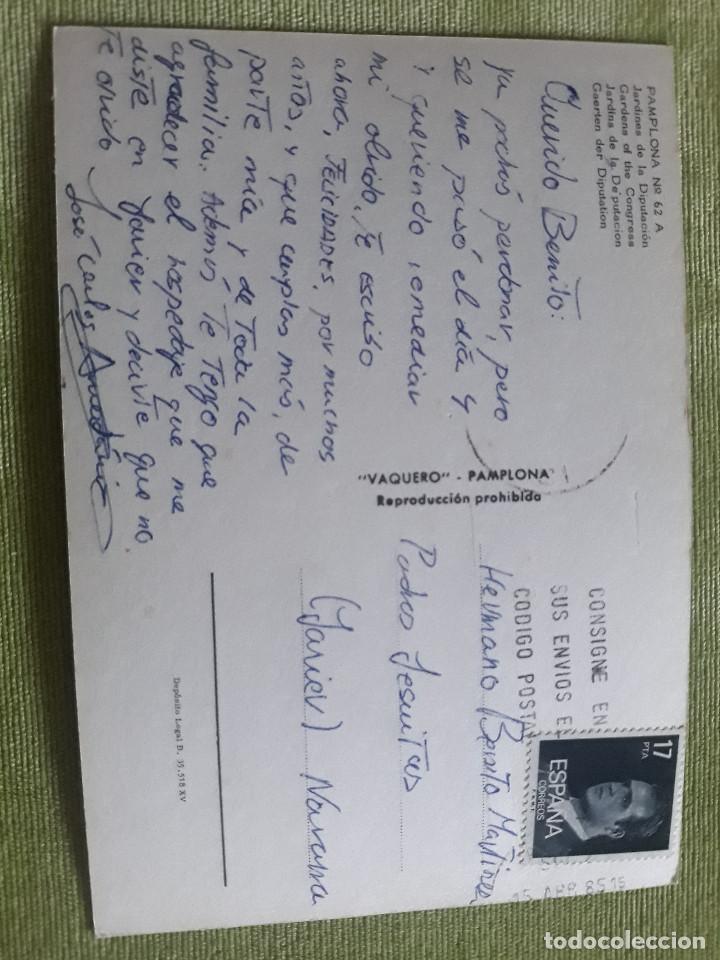 PAMPLONA Nº 62 A
Jardines de la Diputación
Gardens of the Congress
Jardins de la Deputacion
Gaerten der Diputation
Querido Benito:
ya podrás perdonar, pero
se me pasó el día y
y queriendo remediar
mi olvido, te escribo
ahora, FELICIDADES, por muchos
años, y que cumplas más, de
parte mía y de toda la
familia. Además te tengo que
agradecer el hospedaje que me
diste en Javier y decirte que no
te olvido
José Carlos
"VAQUERO" - PAMPLONA
Reproducción prohibida
CONSIGNE EN
SUS ENVIOS EL
CODIGO POSTAL
17
PTA
ESPAÑA
CORREOS
15 ABR 85
Hermano Benito Martinez
Padres Jesuitas
(Javier) Navarra
Depósito Legal B. 35.518 XV
todocoleccion.net